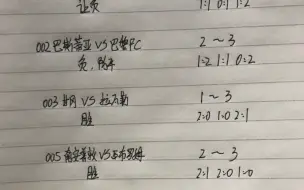 让负 1:1 0:1 1:2
002 巴斯蒂亚 VS 巴黎FC 2～3
负, 1:2 1:1 0:2
003 VS 1～3
胜 2:0 1:0 2:1
005 南安普敦 VS 2～3
胜 2:1 2:0 1:0